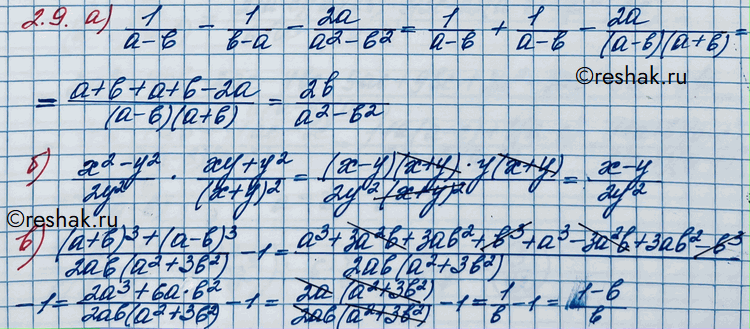 2.9. а) 1/(a-b) - 1/(b-a) - 2a/(a²-b²) = 1/(a-b) + 1/(a-b) - 2a/((a-b)(a+b)) =
©reshak.ru
= (a+b+a+b-2a)/((a-b)(a+b)) = 2b/(a²-b²)
б) (x²-y²)/(2y²) · (xy+y²)/(x+y)² = ((x-y)(x+y)·y(x+y))/(2y²(x+y)²) = (x-y)/(2y²)
©reshak.ru
в) ((a+b)³+(a-b)³)/(2ab(a²+3b²)) - 1 = (a³+3a²b+3ab²+b³+a³-3a²b+3ab²-b³)/(2ab(a²+3b²)) -
- 1 = (2a³+6a·b²)/(2ab(a²+3b²)) - 1 = (2a(a²+3b²))/(2ab(a²+3b²)) - 1 = 1/b - 1 = (1-b)/b